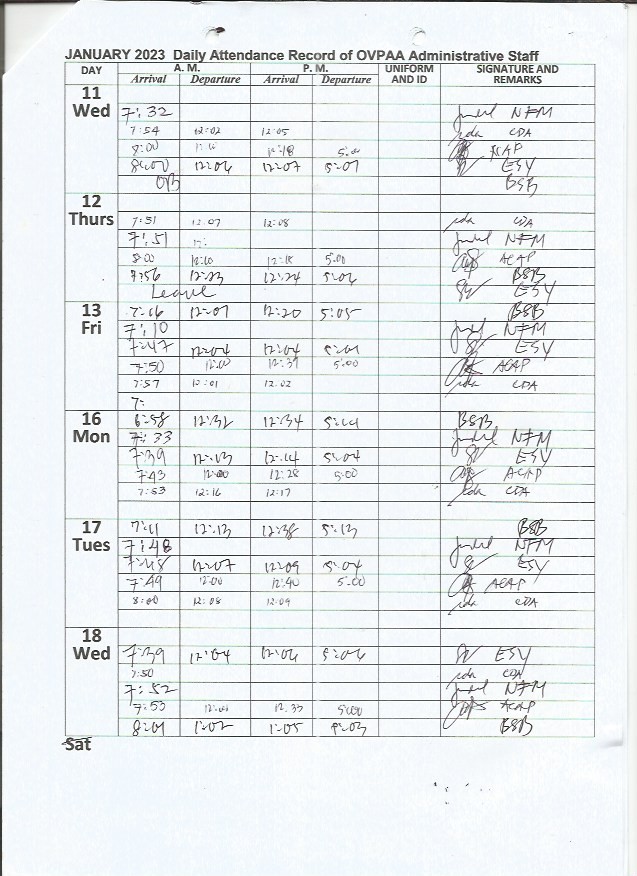 JANUARY 2023 Daily Attendance Record of OVPAA Administrative Staff
DAY A. M. P. M. UNIFORM AND ID SIGNATURE AND REMARKS
Arrival Departure Arrival Departure
11 Wed
7:32 NFM
7:54 12:02 12:05 CDA
8:00 12:18 5:00 ACAP
8:00 12:06 12:07 5:07 ESY
OB BSB
12 Thurs
7:51 12:07 12:08 CDA
7:51 12: NFM
8:00 12:00 12:18 5:00 ACAP
7:56 12:23 12:24 5:06 BSB
Leave ESY
13 Fri
7:16 12:07 12:20 5:05 BSB
7:10 NFM
7:47 12:04 12:04 5:01 ESY
7:50 12:00 12:37 5:00 ACAP
7:57 12:01 12:02 CDA
7:
16 Mon
6:58 12:32 12:34 BSB
7:33 NFM
7:39 12:13 12:14 5:04 ESY
7:43 12:00 12:28 5:00 ACAP
7:53 12:16 12:17 CDA
17 Tues
7:11 12:13 12:38 5:13 BSB
7:48 NFM
7:48 12:07 12:09 5:04 ESY
7:49 12:00 12:40 5:00 ACAP
8:00 12:08 12:09 CDA
18 Wed
7:39 12:04 12:06 5:06 ESY
7:50 CDA
7:52 NFM
7:53 12:00 12:33 5:00 ACAP
8:01 1:02 1:05 5:03 BSB
Sat